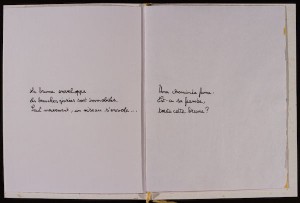 La brume enveloppe
les branches, givrées sont immobiles.
Seul mouvement, un oiseau s'envole...
Une cheminée fume.
Est-ce sa fumée,
toute cette brume ?